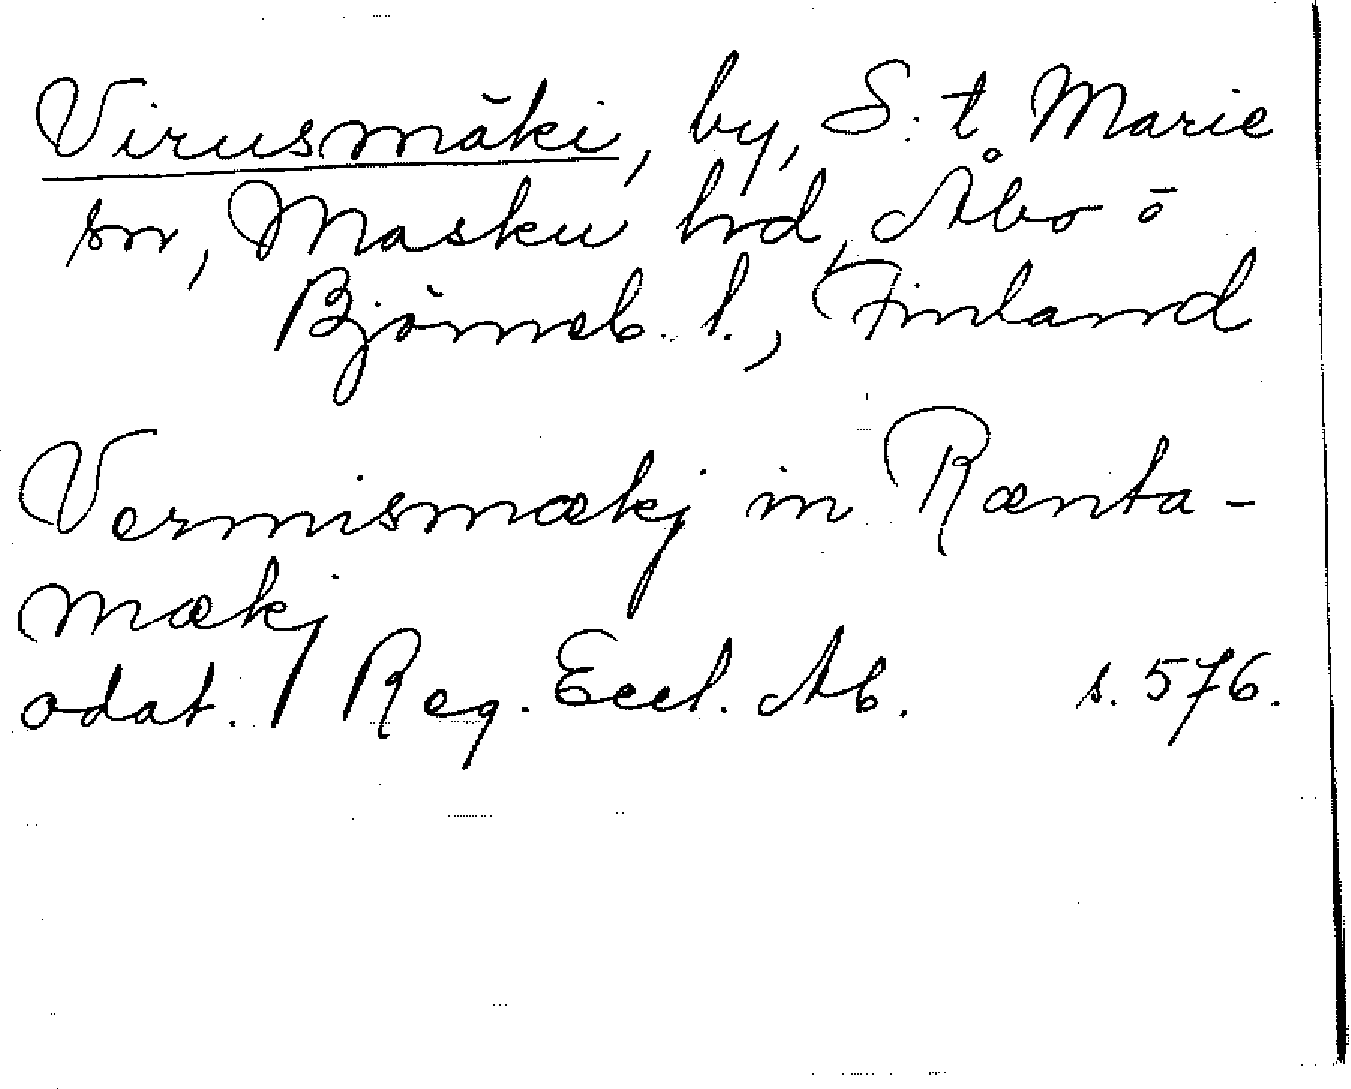 Virusmäki, by, S:t Marie
sn, Masku hd, Åbo o
Björneb. l., Finland
Vermismækj in Rænta-
mækj
odat. / Reg. Eccl. Ab. s. 576.